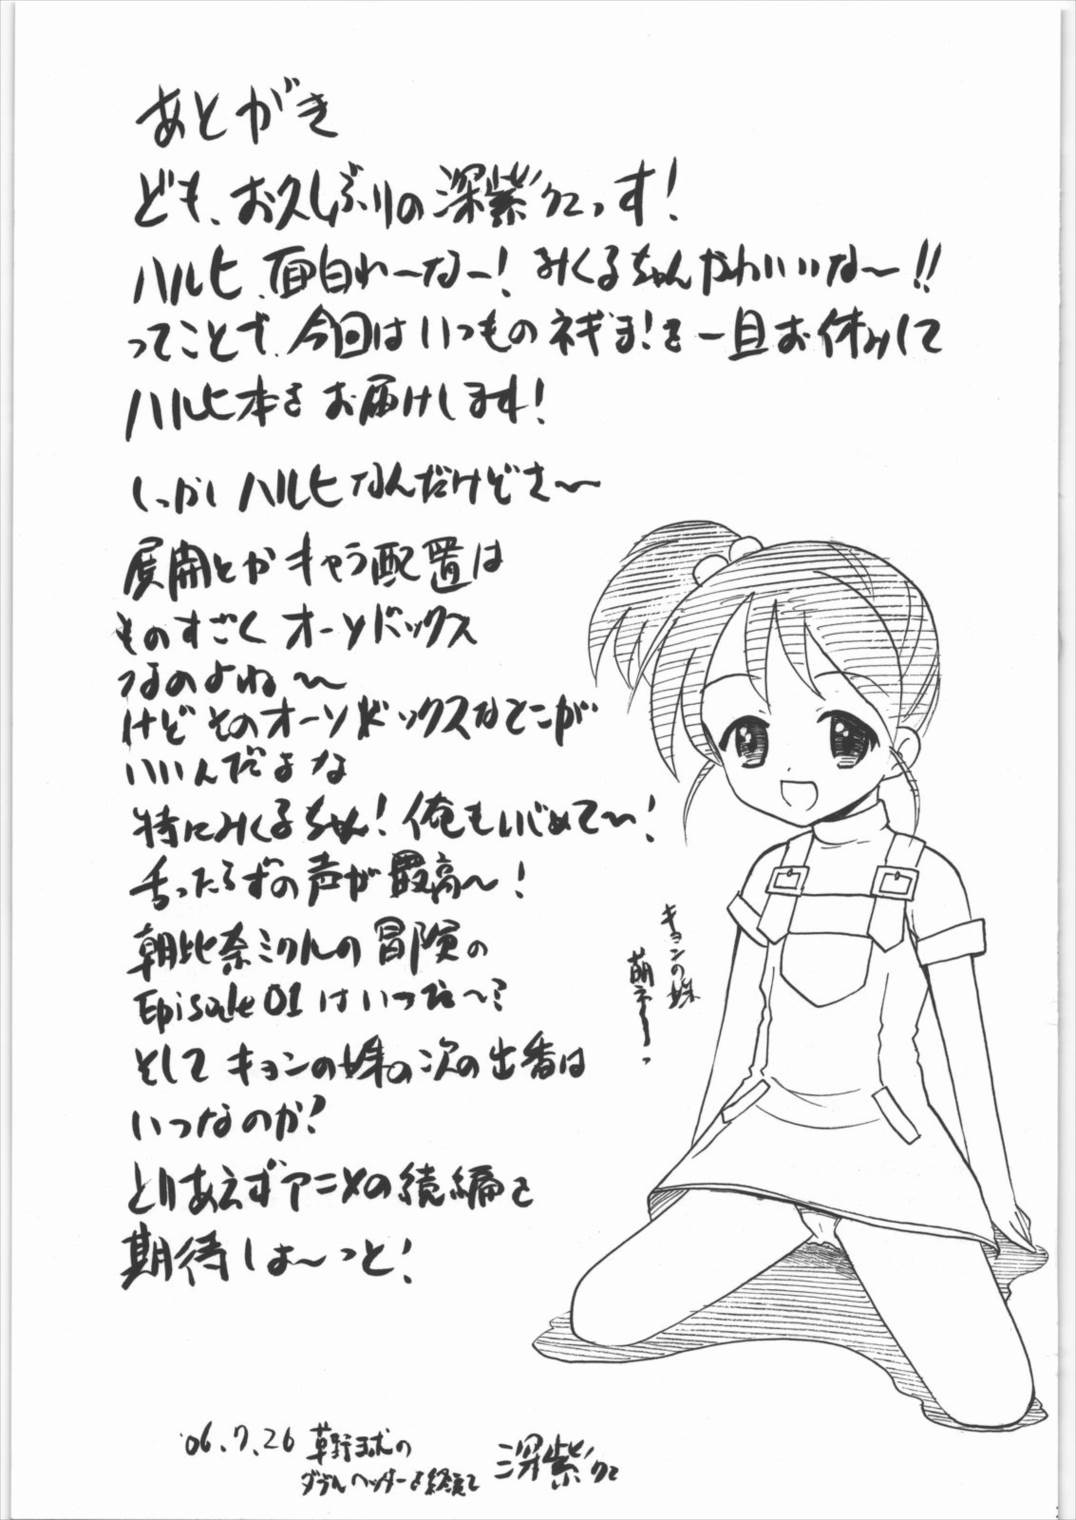 あとがき
ども、お久しぶりの深紫でっす!
ハルヒ、面白れーなー!みくるちゃんかわいいな〜!!
ってことで、今回はいつものネギま!を一旦お休みして
ハルヒ本をお届けします!
しっかしハルヒなんだけどさ〜
展開とかキャラ配置は
ものすごくオーソドックス
なのよね〜
けどそのオーソドックスなとこが
いいんだよな
特にみくるちゃん!俺もいじめて〜!
舌ったらずの声が最高〜!
朝比奈ミクルの冒険の
Episode 01はいつだ〜?
そしてキョンの妹の次の出番は
いつなのか?
とりあえずアニメの続編を
期待しよ〜っと!
キョンの妹
萌えーっ
'06.7.26 草野球の
ダブルヘッダーを終えて
深紫